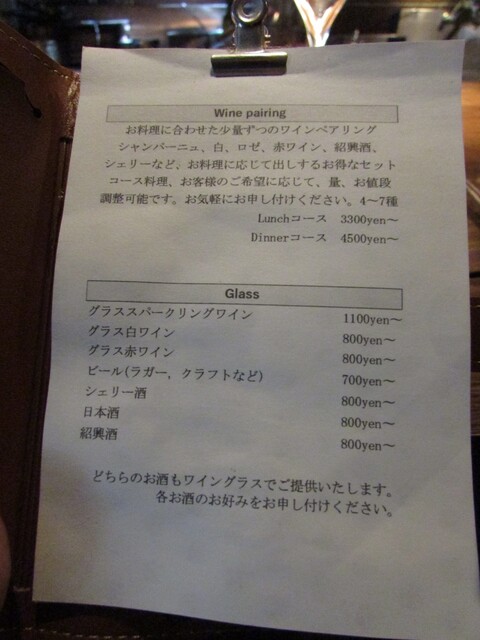 Wine pairing
お料理に合わせた少量ずつのワインペアリング
シャンパーニュ、白、ロゼ、赤ワイン、紹興酒、
シェリーなど、お料理に応じて出しするお得なセット
コース料理、お客様のご希望に応じて、量、お値段
調整可能です。お気軽にお申し付けください。4～7種
Lunchコース 3300yen～
Dinnerコース 4500yen～
Glass
グラススパークリングワイン 1100yen～
グラス白ワイン 800yen～
グラス赤ワイン 800yen～
ビール(ラガー, クラフトなど) 700yen～
シェリー酒 800yen～
日本酒 800yen～
紹興酒 800yen～
どちらのお酒もワイングラスでご提供いたします。
各お酒のお好みをお申し付けください。